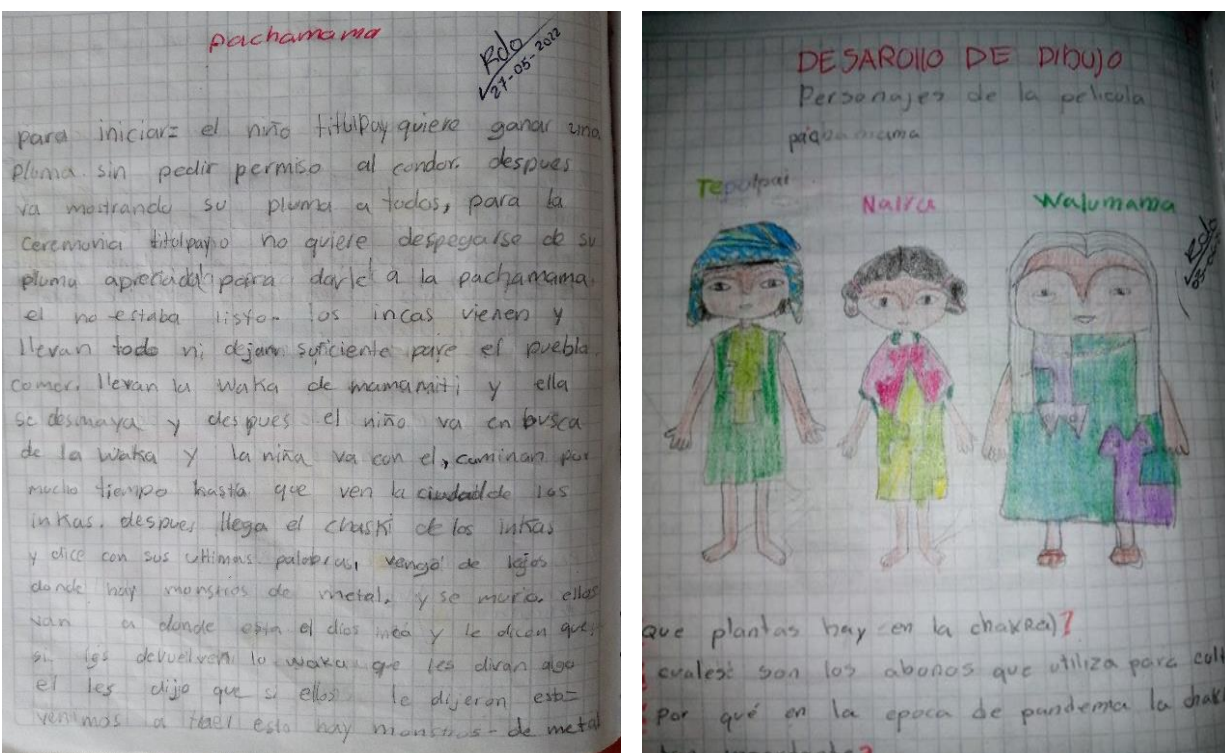 pachamama
Rdo
27-05-2022
para iniciar= el niño titulpay quiere ganar una
pluma sin pedir permiso al condor. despues
va mostrando su pluma a todos, para la
ceremonia titulpayo no quiere despegarse de su
pluma apreciada para darle a la pachamama.
el no estaba listo. los incas vienen y
llevan todo ni dejan suficiente para el puebla
comer. llevan la waka de mamamiti y ella
se desmaya y despues el niño va en busca
de la waka y la niña va con el, caminan por
mucho tiempo hasta que ven la ciudad de los
inkas. despues llega el chaski de los inkas
y dice con sus ultimas palabras, vengo de lejos
donde hay monstros de metal, y se muria. ellos
van a donde esta el dios inca y le dicen que
si les devuelven la waka que les diran algo
el les dijo que si ellos le dijeron esto=
venimos a traer esto hay monstros de metal
DESAROllO DE DIbUJO
Personajes de la pelicula
mama
Tepulpai
Naira
Walumama
Rdo
que plantas hay en la chakra)?
cuales: son los abonos que utiliza para
Por qué en la epoca de pandemia la